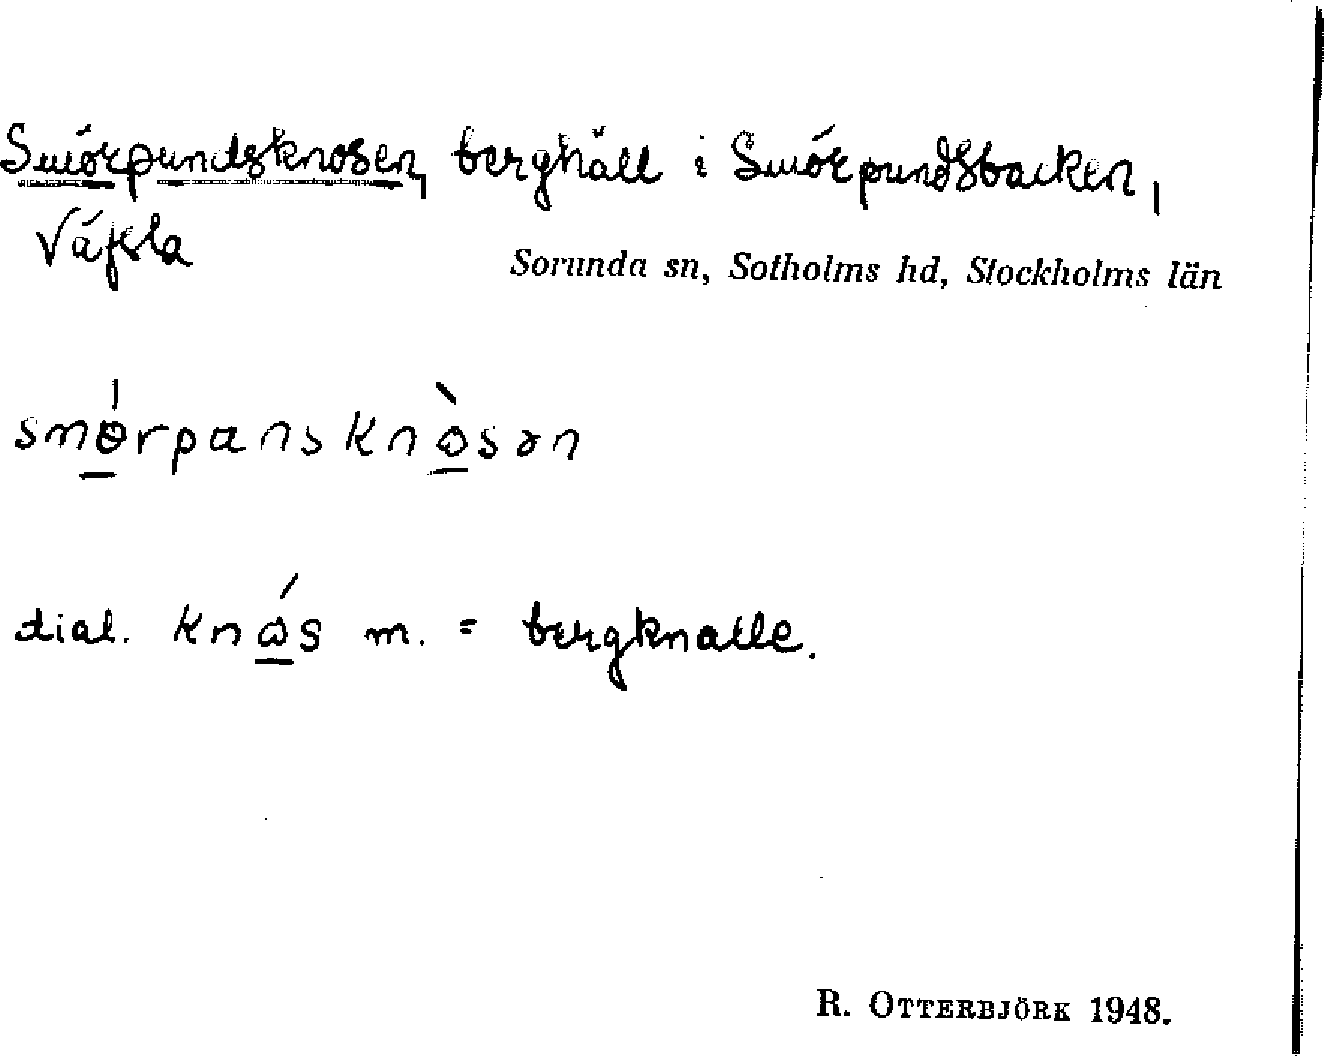 Smörpundsknosen, berghäll i Smörpundsbacken,
Väfsla
Sorunda sn, Sotholms hd, Stockholms län
smɵ́rpansknòsən
dial. knɷ́s m. = bergknalle.
R. OTTERBJÖRK 1948.